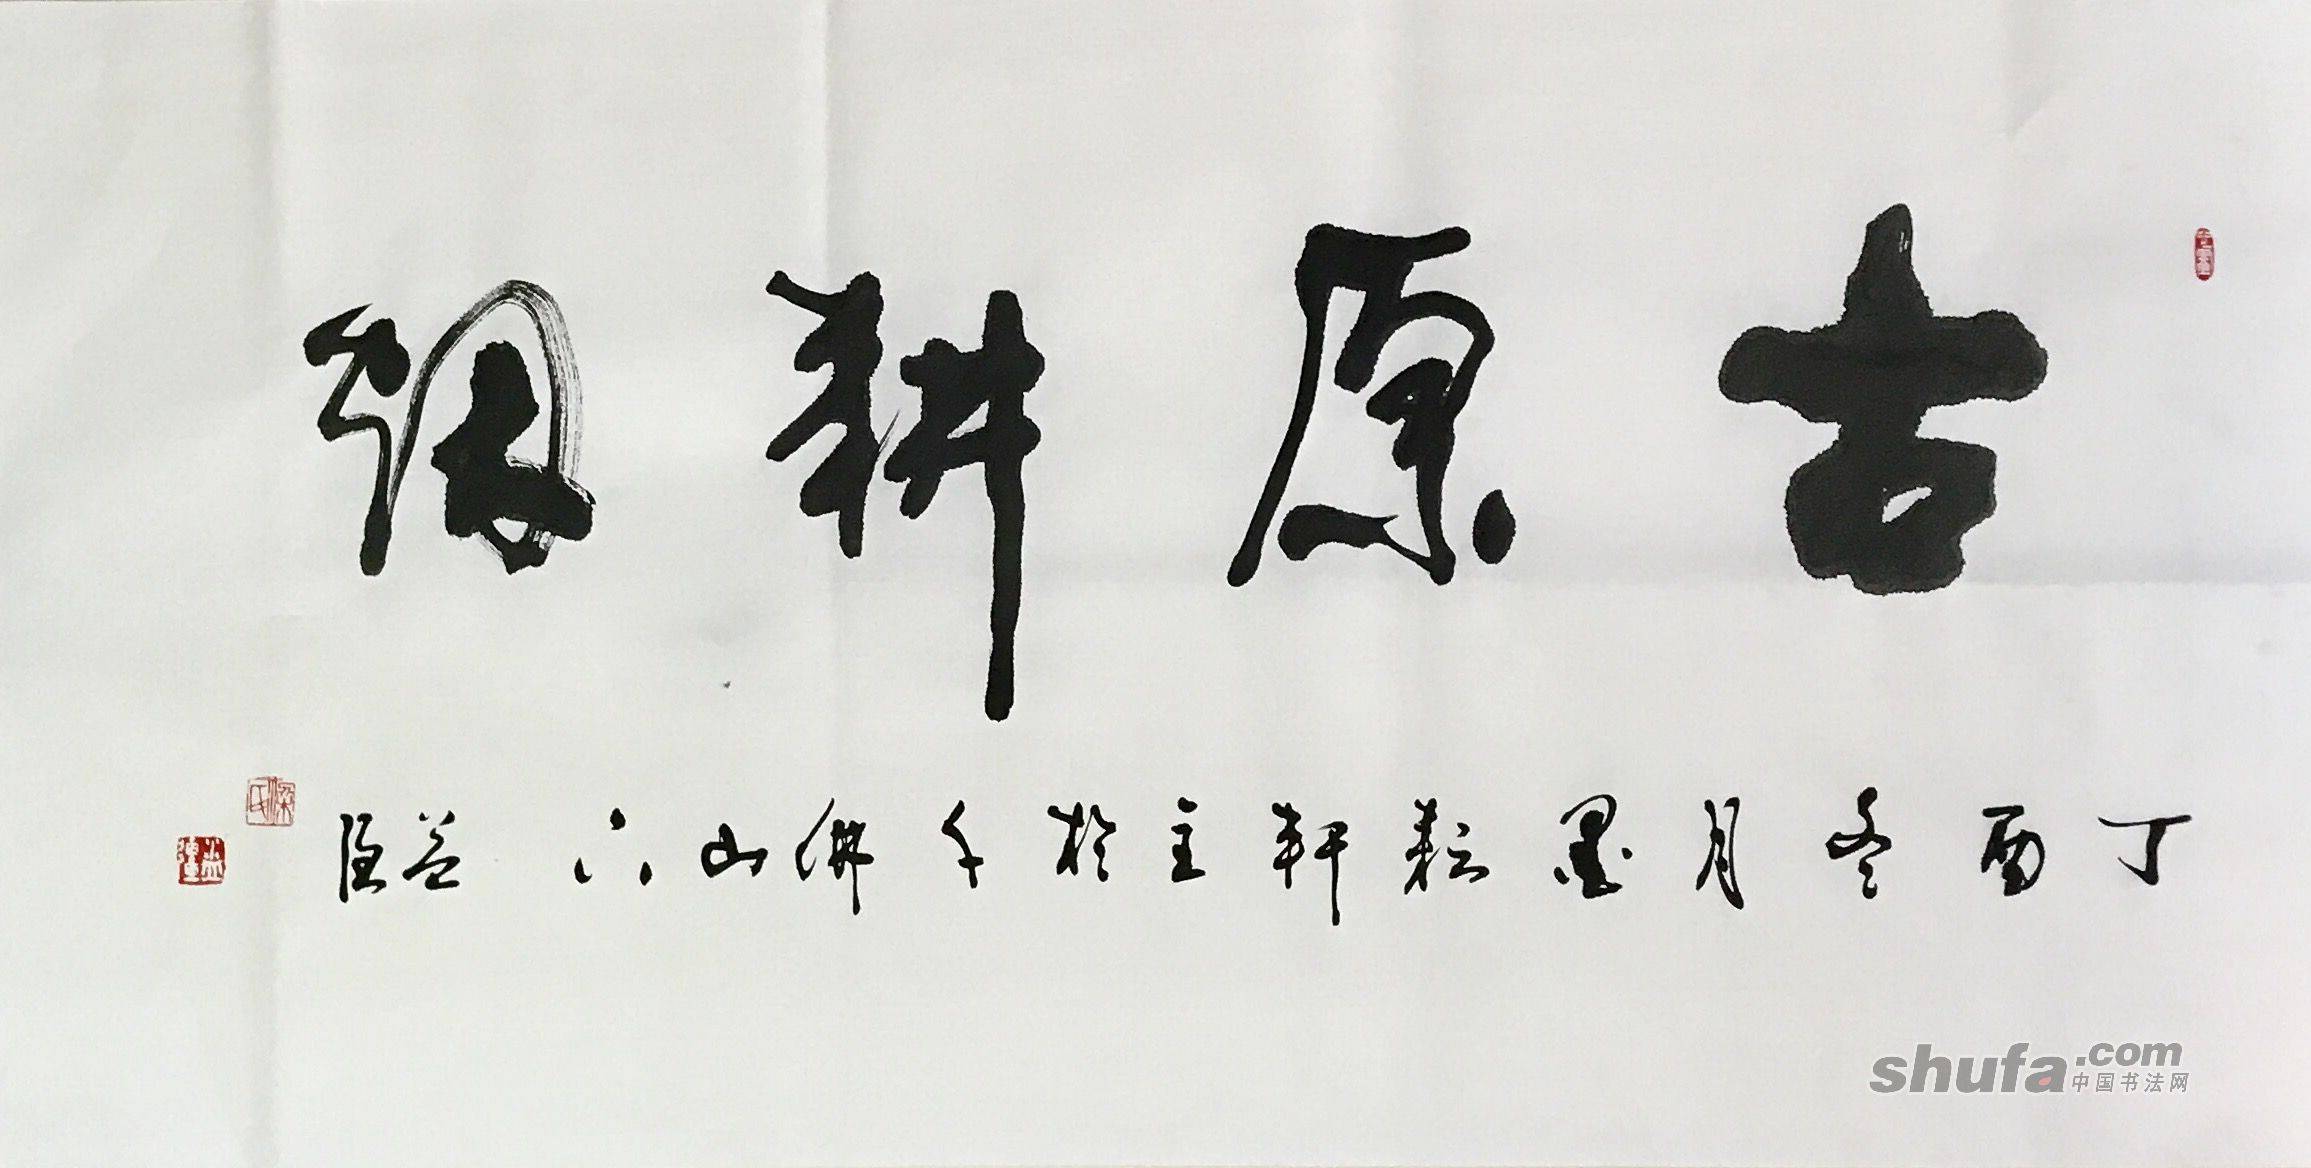 古原耕烟
丁酉冬月墨耘轩主於千佛山下 益
梁氏
shufa.com
中国书法网